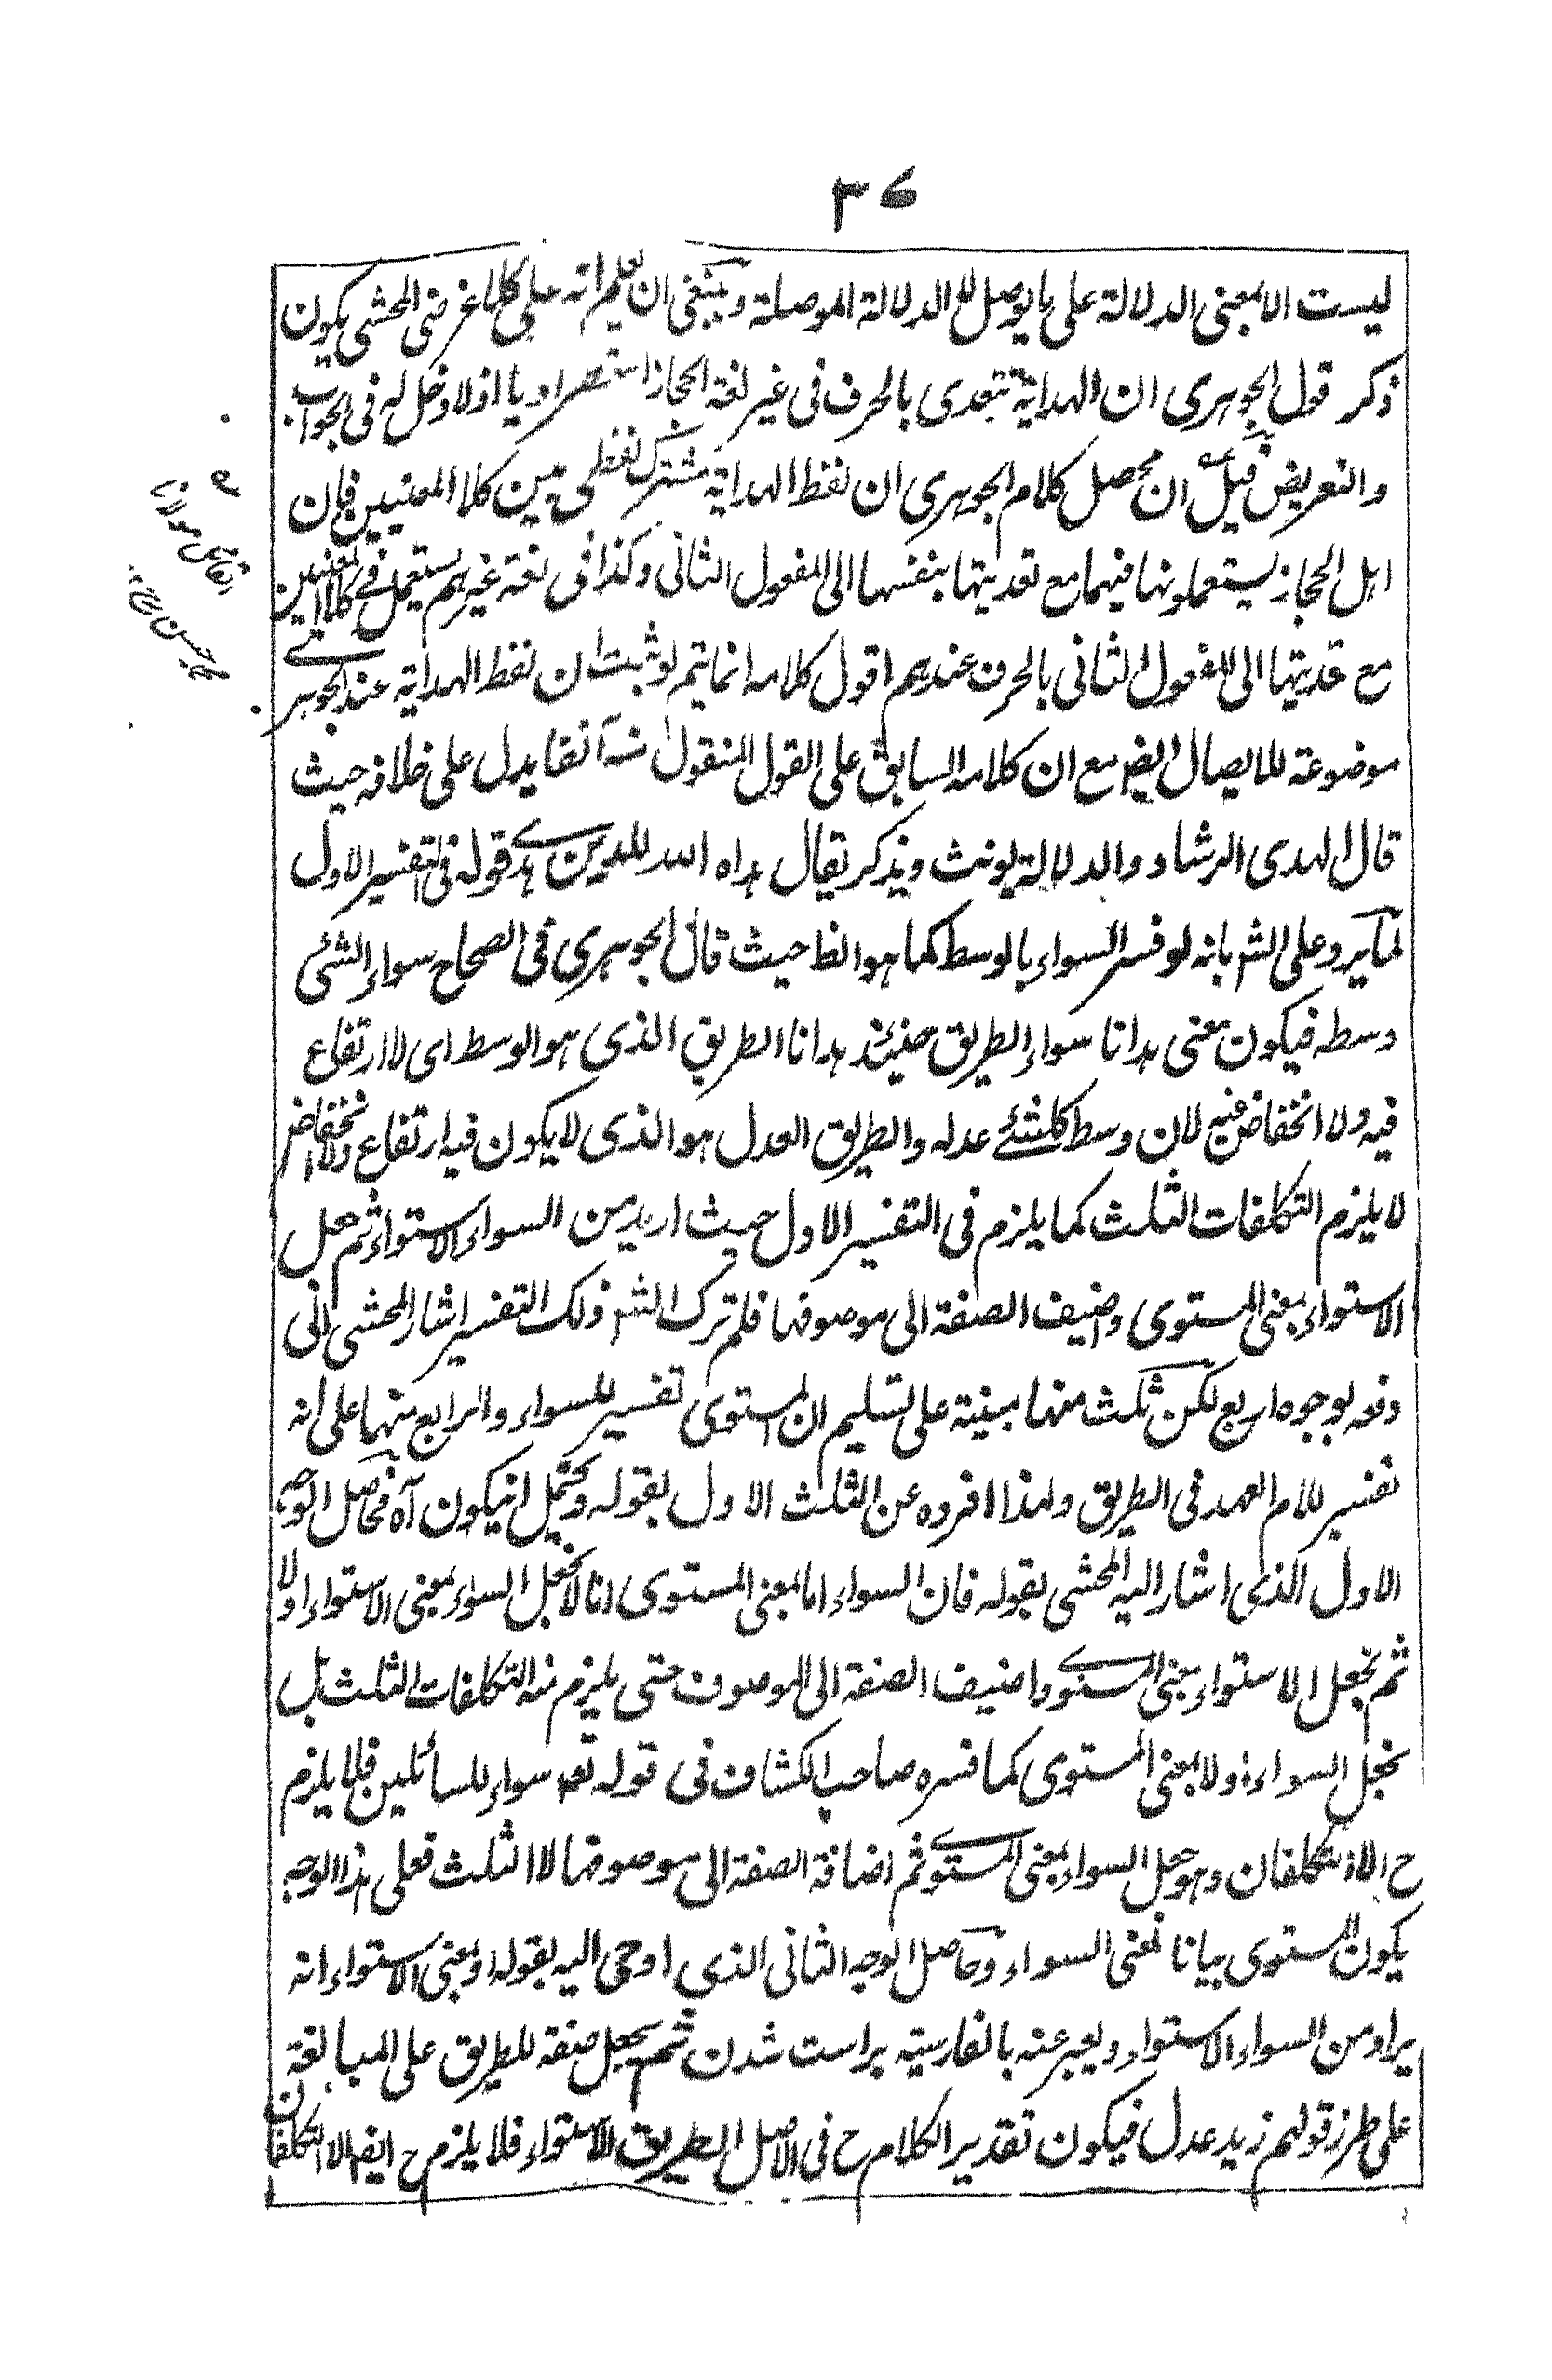 ٣٧
ليست الا بمعنى الدلالة على ما يوصل لا الدلالة الموصلة وينبغى ان يعلم انه على كلا غرضى المحشى يكون
ذكر قول الجوهرى ان الهداية تتعدى بالحرف فى غير لغة الحجاز استطراديا اذ لا دخل له فى الجواب
والتعريض قيل ان محصل كلام الجوهرى ان لفظ الهداية مشترك لفظى بين كلا المعنيين فان
اهل الحجاز يستعملونها فيهما مع تعديتها بنفسها الى المفعول الثانى وكذا فى لغة غيرهم يستعمل فى كلا المعنيين
مع تعديتها الى المفعول الثانى بالحرف عندهم اقول كلامه انما يتم لو ثبت ان لفظ الهداية عند الجوهرى
موضوعة للايصال ايض مع ان كلامه السابق على القول المنقول منه آنفا يدل على خلافه حيث
قال الهدى الرشاد والدلالة يونث ويذكر يقال هداه الله للدين هدى قوله فى التفسير الاول
لما يرد على الش بانه لو فسر السواء بالوسط كما هو الظ حيث قال الجوهرى فى الصحاح سواء الشئ
وسطه فيكون معنى هدانا سواء الطريق حينئذ هدانا الطريق الذى هو الوسط اى لا ارتفاع
فيه ولا انخفاض فيه لان وسط كل شئ عدله والطريق العدل هو الذى لا يكون فيه ارتفاع ولا انخفاض
لا يلزم التكلفات الثلث كما يلزم فى التفسير الاول حيث اريد من السواء الاستواء ثم جعل
الاستواء بمعنى المستوى واضيف الصفة الى موصوفها فلم ترك الش ذلك التفسير اشار المحشى الى
دفعه بوجوه اربع لكن ثلث منها مبنية على تسليم ان المستوى تفسير للسواء والرابع منها على انه
تفسير للام العهد فى الطريق ولهذا افرده عن الثلث الاول بقوله ويحتمل ان يكون آه فحاصل الوجه
الاول الذى اشار اليه المحشى بقوله فان السواء اما بمعنى المستوى انا لا نجعل السواء بمعنى الاستواء اولا
ثم نجعل الاستواء بمعنى المستوى واضيف الصفة الى الموصوف حتى يلزم منه التكلفات الثلث بل
نجعل السواء اولا بمعنى المستوى كما فسره صاحب الكشاف فى قوله تعه سواء للسائلين فلا يلزم
ح الا التكلفان وهو جعل السواء بمعنى المستوى ثم اضافة الصفة الى موصوفها لا الثلث فعلى هذا الوجه
يكون المستوى بيانا لمعنى السواء وحاصل الوجه الثانى الذى اوحى اليه بقوله او بمعنى الاستواء انه
يراد من السواء الاستواء ويعبر عنه بالفارسية براست شدن ثم يجعل صفة للطريق على المبالغة
على طرز قولهم زيد عدل فيكون تقدير الكلام ح فى الاصل الطريق الاستواء فلا يلزم ح ايضه الا التكلفان